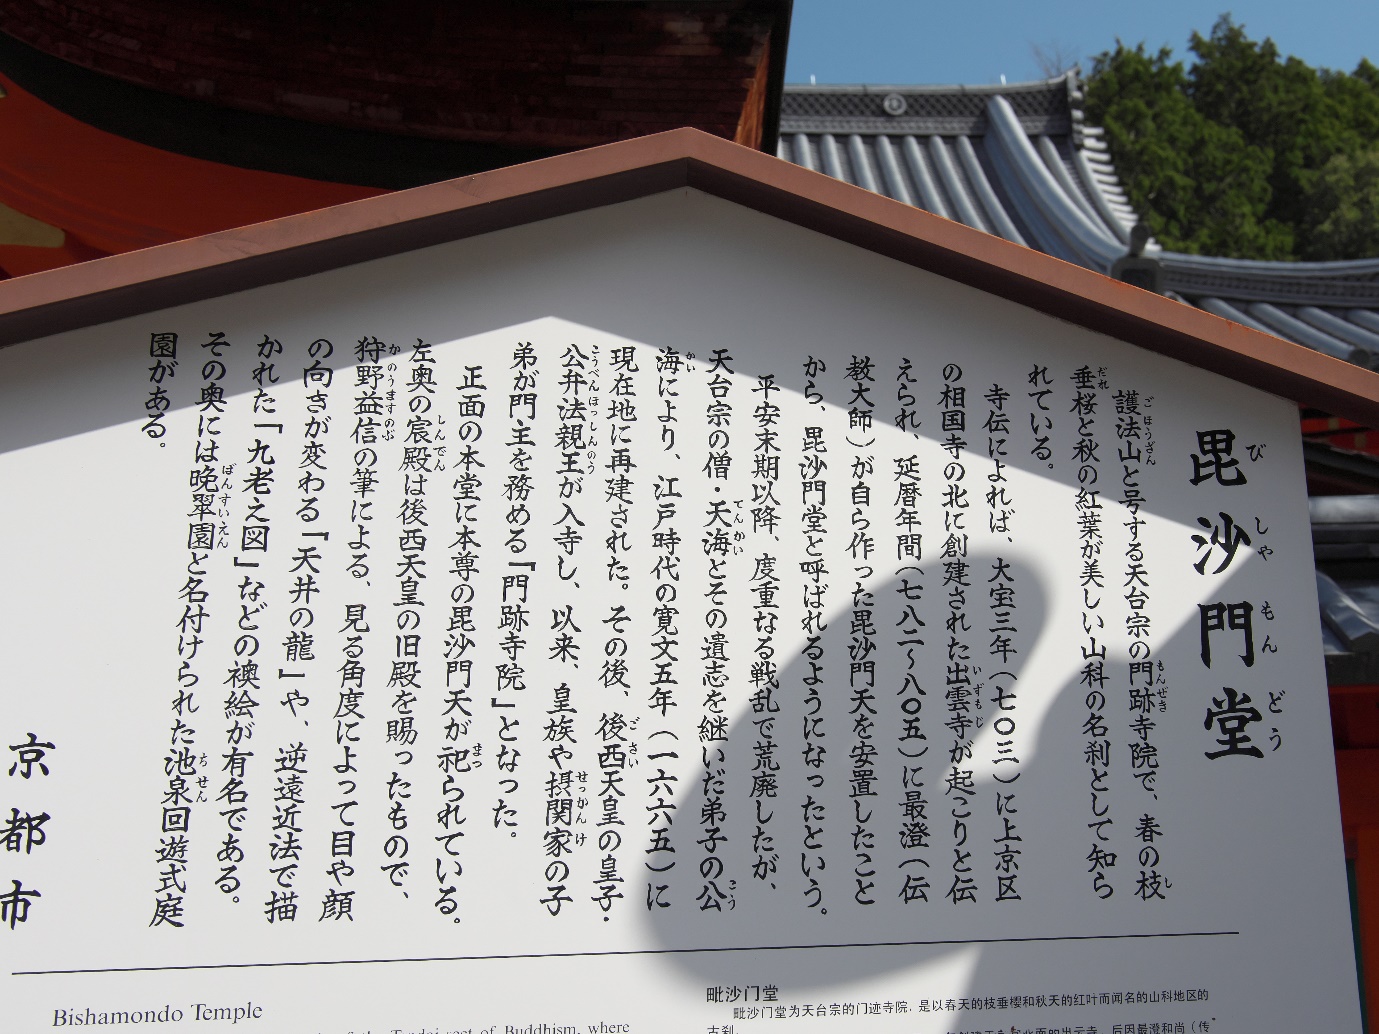 毘沙門堂
護法山と号する天台宗の門跡寺院で、春の枝
垂桜と秋の紅葉が美しい山科の名刹として知ら
れている。
寺伝によれば、大宝三年(七〇三)に上京区
の相国寺の北に創建された出雲寺が起こりと伝
えられ、延暦年間(七八二〜八〇五)に最澄(伝
教大師)が自ら作った毘沙門天を安置したこと
から、毘沙門堂と呼ばれるようになったという。
平安末期以降、度重なる戦乱で荒廃したが、
天台宗の僧・天海とその遺志を継いだ弟子の公
海により、江戸時代の寛文五年(一六六五)に
現在地に再建された。その後、後西天皇の皇子・
公弁法親王が入寺し、以来、皇族や摂関家の子
弟が門主を務める「門跡寺院」となった。
正面の本堂に本尊の毘沙門天が祀られている。
左奥の宸殿は後西天皇の旧殿を賜ったもので、
狩野益信の筆による、見る角度によって目や顔
の向きが変わる「天井の龍」や、逆遠近法で描
かれた「九老之図」などの襖絵が有名である。
その奥には晩翠園と名付けられた池泉回遊式庭
園がある。
京都市
Bishamondo Temple
Tendai sect of Buddhism, where
毗沙门堂
毗沙门堂为天台宗的门迹寺院,是以春天的枝垂樱和秋天的红叶而闻名的山科地区的
古刹。
后因最澄和尚(传